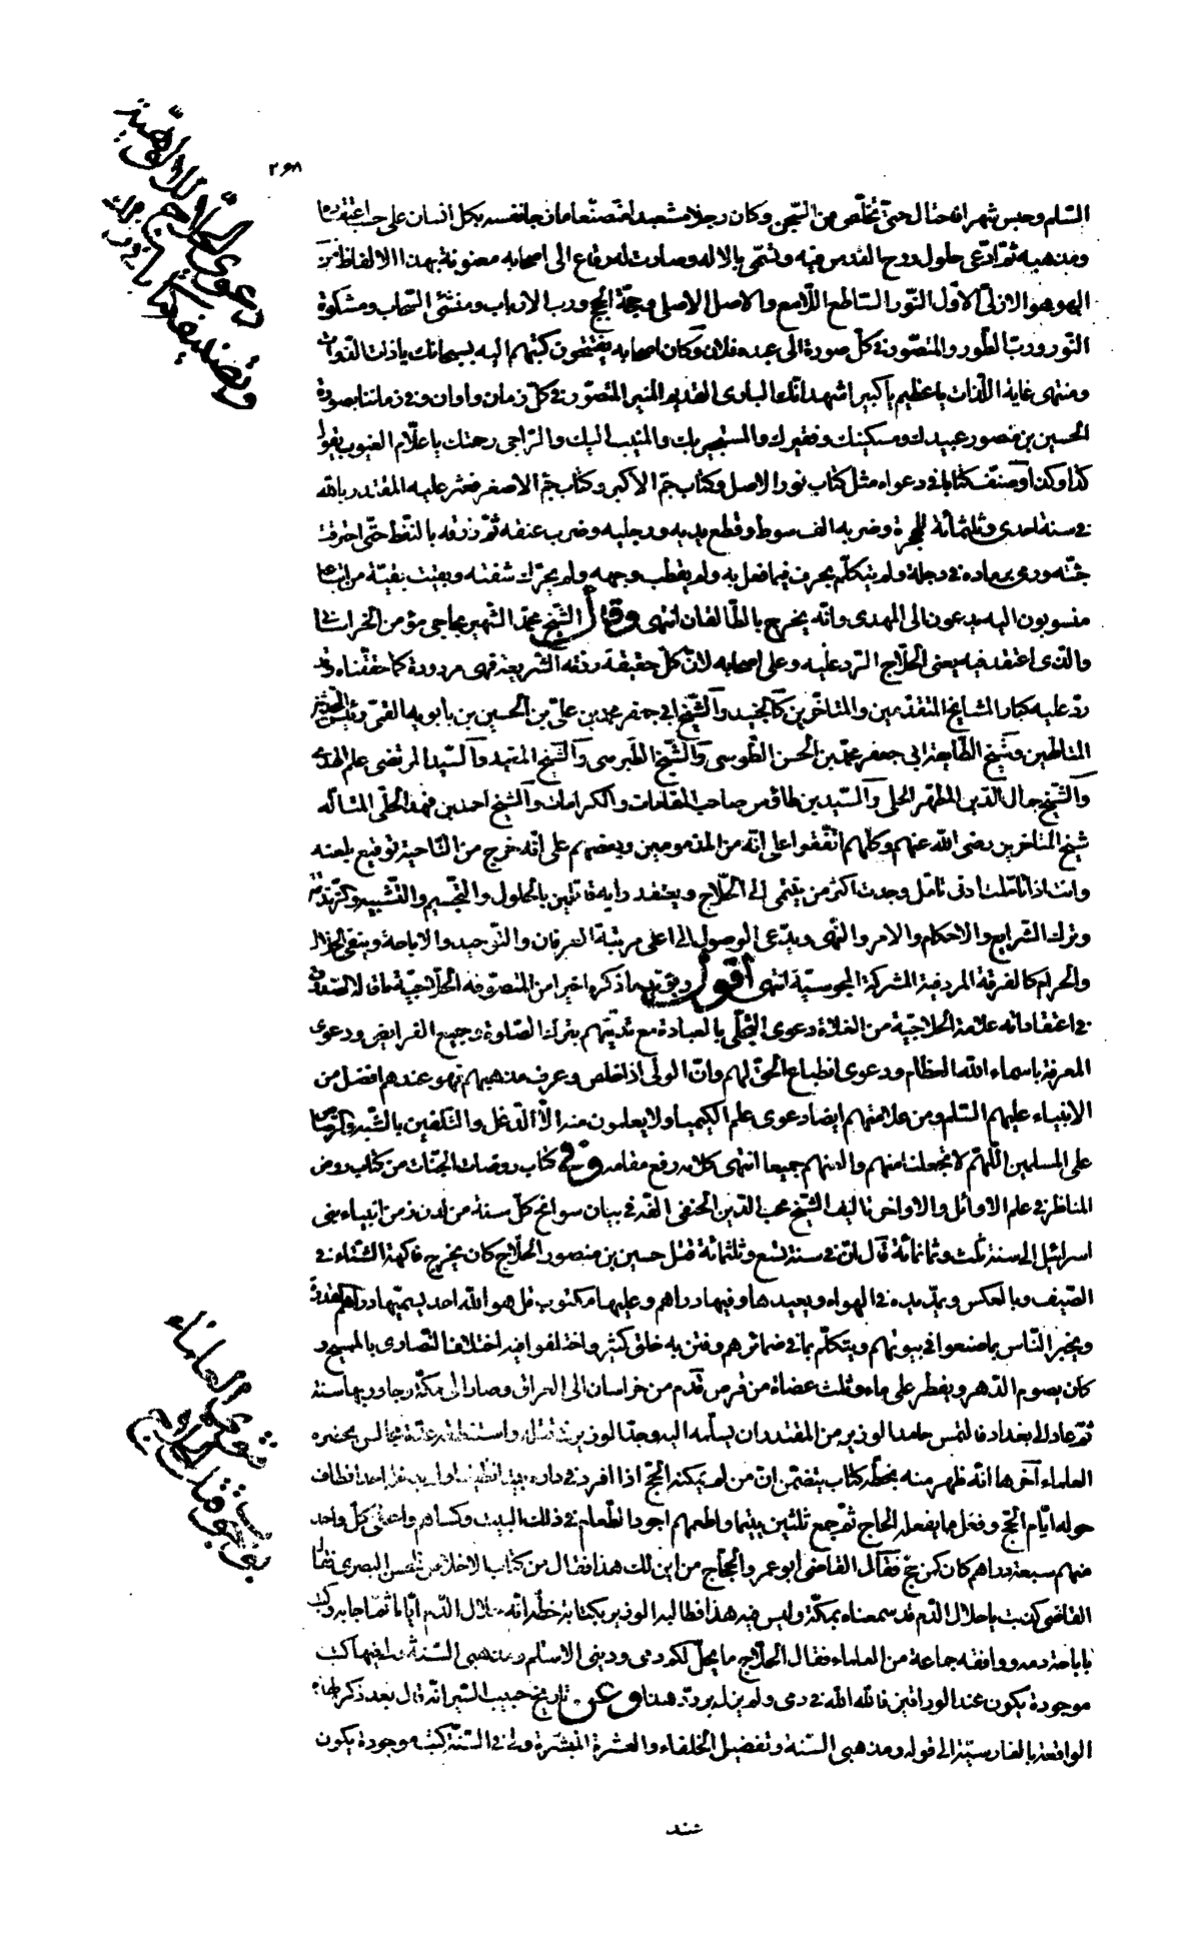 ٢٦٨
دعوى الحلاج للالوهية
وتصنيفه كتابا نور
السّلم وحبس ثمّ انه احتال حتى تخلّص من السّجن وكان رجلا مشعبدا متصنّعا مازجا نفسه بكل انسان على حسب اعتقاده
ومذهبه ثمّ ادّعى حلول روح القدس فيه وتسمّى بالاله وصارت له رقاع الى اصحابه معنونة بهذه الالفاظ من
الهو هو الازلىّ الاوّل النّور السّاطع اللّامع والاصل الاصلى وحجّة الحجج وربّ الارباب ومنشئ السّحاب ومشكوة
النّور وربّ الطّور والمتصّور فى كلّ صورة الى عبده فلان وكان اصحابه يفتتحون كتبهم اليه بسبحانك يا ذات الذّوات
ومنتهى غاية اللّذات يا عظيم يا كبير اشهد انّك البارى القديم المنير المتصوّر فى كلّ زمان واوان وفى زماننا بصورة
الحسين بن منصور عبيدك ومسكينك وفقيرك والمستجير بك والمنيب اليك والرّاجى رحمتك يا علّام الغيوب يقول
كذا وكذا وصنّف كتابا فى دعواه مثل كتاب نور الاصل وكتاب جمّ الاكبر وكتاب جمّ الاصغر فعثر عليه المقتدر بالله
فى سنة احدى وثلثمائة للهجرة وضربه الف سوط وقطع يديه ورجليه وضرب عنقه ثمّ زرقه بالنّفط حتّى احترقت
جثّته ورمى برماده فى دجلة ولم يتكلّم بحرف فيما فعل به ولم يقطب وجهه ولم يحرّك شفته وبقيت بقيّة من اتباعه
منسوبون اليه يدعون الى المهدى وانّه يخرج بالطّالقان انتهى وقال الشّيخ محمّد الشّهير بحاجى مؤمن الخراسانى
والذى اعتقد فيه يعنى الحلّاج الرّد عليه وعلى اصحابه لانّ كلّ حقيقة ردّته الشّريعة فهى مردودة كما حقّقناه وقد
ردّ عليه كبار المشايخ المتقدّمين والمتاخّرين كالجنيد والشّيخ ابى جعفر محمد بن علىّ بن الحسين بن بابويه القمىّ ورئيس
المتالّهين وشيخ الطّايفة ابى جعفر محمّد بن الحسن الطّوسى والشّيخ الطّبرسى والشّيخ المفيد والسّيد المرتضى علم الهدى
والشّيخ جمال الدّين المطهّر الحلّى والسّيد بن طاوس صاحب المقامات والكرامات والشّيخ احمد بن فهد الحلّى المتالّه
شيخ المتاخّرين رضى الله عنهم وكلّهم اتّفقوا على انّه من المذمومين وبعضهم على انّه خرج من النّاحية توقيع بلعنه
وانت اذا تاملت ادنى تامّل وجدت اكثر من ينتمى الى الحلّاج ويعتقد رايه قائلين بالحلول والتّجسيم والتّشبيه
وترك الشّرايع والاحكام والامر والنّهى ويدّعى الوصول الى اعلى مرتبة العرفان والتّوحيد والاباحة وينفى الحلال
والحرام كالفرقة المردفية المشركة المجوسيّة انتهى اقول ويؤيّد ما ذكره اخيرا من المتصوّفه الحلّاجيّة ما قال الصّدوق
فى اعتقاداته علامة الحلّاجيّة من الغلاة دعوى التّجلّى بالعبادة مع تديّنهم بترك الصّلوة وجميع الفرايض ودعوى
المعرفة باسماء الله العظام ودعوى انطباع الحقّ لهم وانّ الولى اذا خلص وعرف مذهبهم فهو عندهم افضل من
الانبياء عليهم السّلم ومن علامتهم ايضا دعوى علم الكيميا ولا يعلمون منه الّا الدّغل والتّلفيق بالشّبه والرّصاص
على المسلمين اللّهمّ لا تجعلنا منهم والعنهم جميعا انتهى كلامه رفع مقامه وفى كتاب روضات الجنّات من كتاب روض
المناظر فى علم الاوائل والاواخر تاليف الشّيخ محب الدّين الحنفى الّفه فى بيان سوانح كلّ سنة من لدن زمن انبياء بنى
اسرائيل الى سنة ثلث وثمانمائة قال انّ فى سنة تسع وثلثمائة قتل حسين بن منصور الحلّاج كان يخرج فاكهة الشّتاء فى
الصّيف وبالعكس ويمدّ يده فى الهواء ويعيدها وفيها دراهم وعليها مكتوب قل هو الله احد يسمّيها دراهم القدرة
ويخبر النّاس بما صنعوا فى بيوتهم ويتكلّم بما فى ضمائرهم وفتن به خلق كثير واختلفوا فيه اختلاف النّصارى بالمسيح و
كان يصوم الدّهر ويفطر على ماء وثلث عضاة من قرص قدم من خراسان الى العراق وصار الى مكّة وجاور بها سنة
ثمّ عاد الى بغداد فالتمس حامد الوزير من المقتدر ان يسلّمه اليه وجدّ الوزير فى قتله واستنطقه عدّة مجالس بحضرة
العلماء آخرها انّه ظهر منه بخطّه كتاب يتضمّن انّ من لم يمكنه الحجّ اذا افرد فى داره بيتا نظيفا ولم يدخله احد فطاف
حوله ايّام الحجّ وفعل ما يفعله الحاج ثمّ جمع ثلثين يتيما واطعمهم اجود الطّعام فى ذلك البيت وكساهم واعطى كلّ واحد
منهم سبعة دراهم كان كمن حجّ فقال القاضى ابو عمر والحجّاج من اين لك هذا فقال من كتاب الاخلاص للحسن البصرى فقال
القاضى كذبت يا حلال الدّم قد سمعناه بمكّة وليس فيه هذا فطالبه الوزير بكتابة خطّه انّه حلال الدّم ايّاما ثمّ اجابه وكتب
باباحة دمه ووافقه جماعة من العلماء فقال الحلّاج ما يحلّ لكم دمى ودينى الاسلم ومذهبى السّنة ولى فيها كتب
موجودة يكون عند الورّاقين فالله الله فى دمى ولم يزل يردّد هذا وعن تاريخ حبيب السّير انّه قال بعد ذكر هذه
الواقعة بالفارسيّة الى قوله ومذهبى السّنة وتفضيل الخلفاء والعشرة المبشّرة ولى فى السّنّة كتب موجودة يكون
فتوى العلماء
بوجوب قتل الحلاج
عند